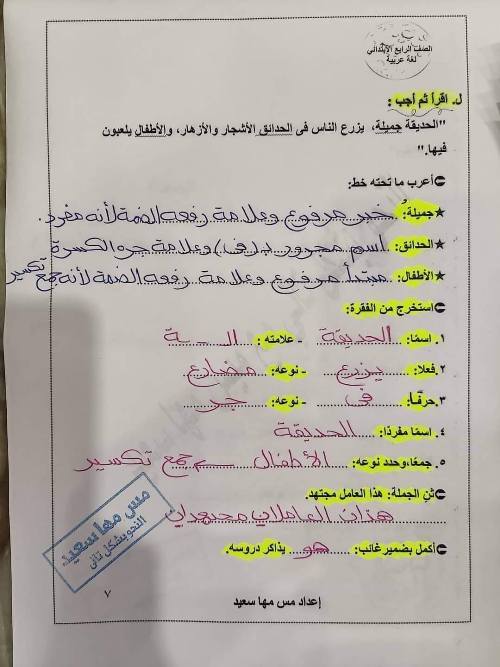 الصف الرابع الابتدائي
لغة عربية
ل. اقرأ ثم أجب :
"الحديقة جميلة، يزرع الناس فى الحدائق الأشجار والأزهار، والأطفال يلعبون
فيها."
أعرب ما تحته خط:
★جميلة: خبر مرفوع وعلامة رفعه الضمة لأنه مفرد.
★الحدائق: اسم مجرور بـ(فى) وعلامة جره الكسرة
★الأطفال: مبتدأ مرفوع وعلامة رفعه الضمة لأنه جمع تكسير
استخرج من الفقرة:
١. اسمًا: الحديقة - علامته: الـ ـة
٢.فعلا: يزرع - نوعه: مضارع
٣.حرفًا: فى - نوعه: جر
٤. اسمًا مفردًا: الحديقة
٥. جمعًا،وحدد نوعه: الأطفال جمع تكسير
ثنِ الجملة: هذا العامل مجتهد.
هذان العاملان مجتهدان
أكمل بضمير غائب: هو يذاكر دروسه.
مس مها سعيد
النحو بشكل تانى
٧
إعداد مس مها سعيد